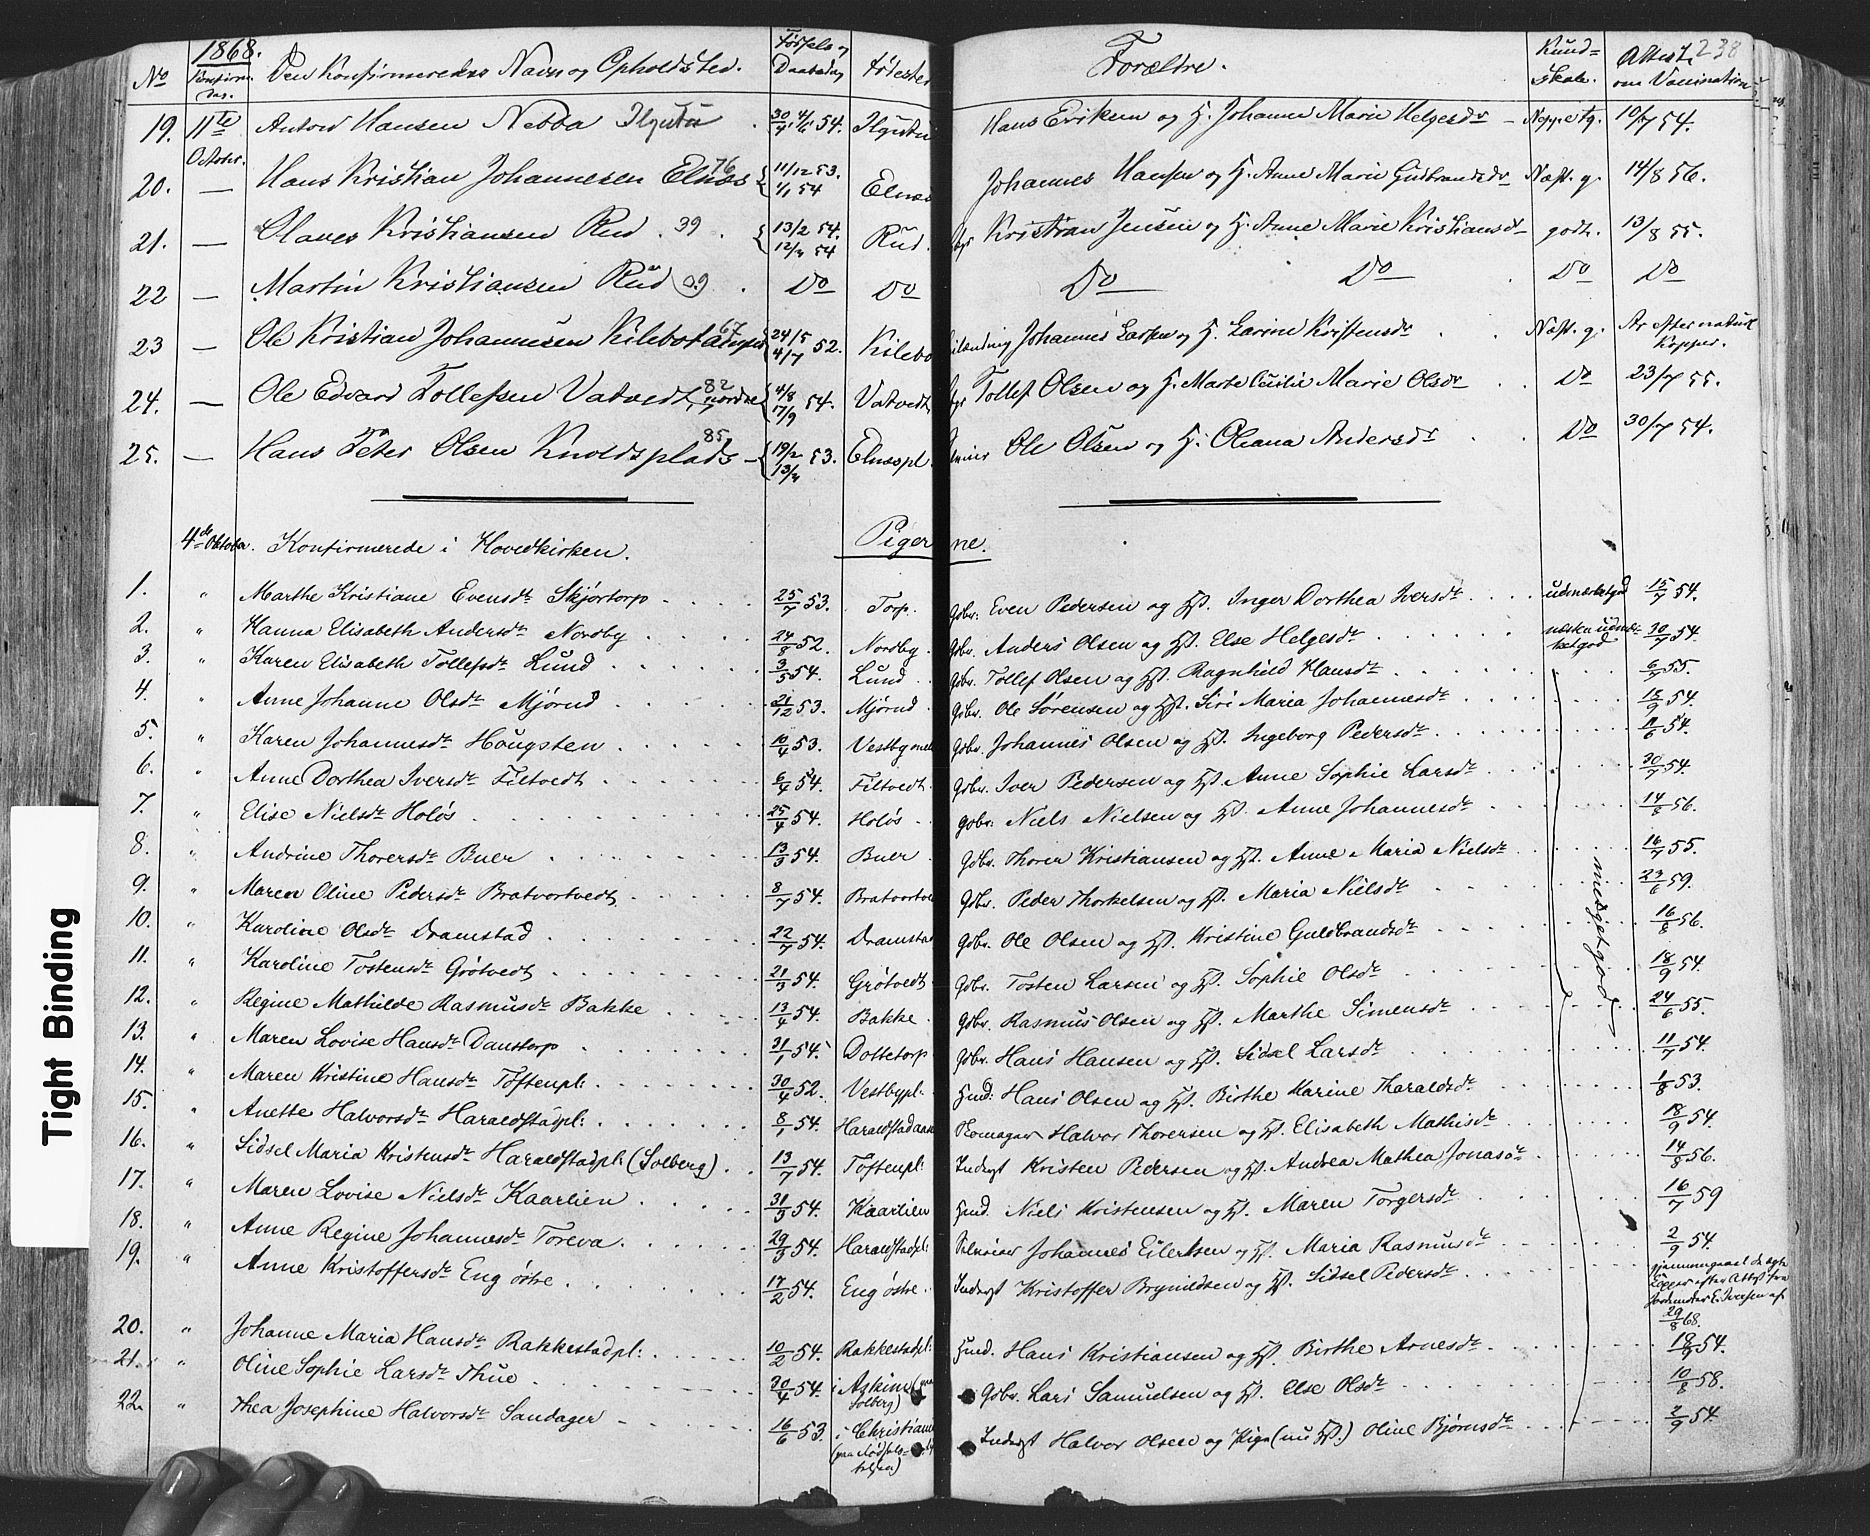 1868.
No Konfirm. Dag. Den Konfirmeredes Navn og Opholdsted. Fødsels og Daabsdag Fødested Forældre. Kund= skab. Attest om Vaccination 238
19. 11te October. Anton Hansen Nebba 54. Hans Eriksen og H. Johanne Marie Helgesdr 10/7 54.
20. — Hans Kristian Johannesen Elnæs 76 11/12 53. 1/1 54 Elnæs Johannes Hansen og H. Anne Marie Gudbrandsdr Næst. g. 14/8 56.
21. — Olaves Kristiansen Rud. 39. 13/2 54. 54 Rud. Kristian Jensen og H. Anne Marie Kristiansdr godt. 13/8 55.
22 — Martin Kristiansen Rud 39. Do Do Do Do Do Do
23 — Ole Kristian Johannesen 67 24/5 4/7 52. Kilebo Johannes Larsen og H. Larine Kristensdr Næst. g. Ar efter naturl Kopper.
24. — Ole Edvard Tollefsen Vatvedt, nordre 82 4/8 17/9 54. Vatvedt Tollef Olsen og H. Marte Cecilie Marie Olsdr Do 23/7 55.
25. — Hans Peter Olsen Knoldsplads 85 19/2 53. Elnæspl. Ole Olsen og H. Oleana Andersdr Do 30/7 54.
4de Oktober. Konfirmerede i Hovedkirken. Pigerne.
1. " Marthe Kristiane Evensdr Skjørtorp 25/7 53. Torp. Gdbr. Even Pedersen og Hst. Inger Dorthea Iversdr udmærketgod 15/7 54.
2. " Hanna Elisabeth Andersdr Nordby 24/8 52. Nordby. Gdbr. Anders Olsen og Hst. Else Helgesdr næsten udmærketgod 30/7 54.
3. " Karen Elisabeth Tollefsdr Lund 3/5 54. Lund Gdbr. Tollef Olsen og Hst. Ragnhild Hansdr 55.
4. " Anne Johanne Olsdr Mjørud 21/12 53. Mjørud Gdbr. Ole Sørensen og Hst. Siri Maria Johannesdr 18/9 54.
5. " Karen Johannesdr Hougsten 16/4 53. Gdbr. Johannes Olsen og Hst. Ingeborg Pedersdr 54.
6. " Anne Dorthea Iversdr Filtvedt 6/4 54. Filtvedt Gdbr. Iver Pedersen og Hst. Anne Sophie Larsdr 30/7 54.
7. " Elise Nielsdr Holøs 25/4 54. Holøs Gdbr. Niels Nielsen og Hst. Anne Johannesdr 14/8 56.
8. " Andrine Thorersdr Buer 13/3 54. Buer Gdbr. Thorer Kristiansen og Hst. Anne Maria Nielsdr 16/7 55.
9. " Maren Oline Pedersdr Bratvortvedt 8/7 54. Bratvortve Gdbr. Peder Thorkelsen og Hst. Maria Nielsdr 23/6 59.
10. " Karoline Olsdr Dramstad 22/7 54. Dramsta Gdbr. Ole Olsen og Hst. Kristine Guldbrandsdr 16/8 56.
11. " Karoline Tostensdr Grøtvedt 21/3 54. Grøtvedt Gdbr. Tosten Larsen og Hst. Sophie Olsdr 18/9 54.
12. " Regine Mathilde Rasmusdr Bakke 13/4 54. Bakke Gdbr. Rasmus Olsen og Hst. Marthe Simensdr 24/6 55.
13. " Maren Lovise Hansdr Danstorp 31/1 54. Dottetorp Gdbr. Hans Hansen og Hst. Sidsel Larsdr 11/7 54.
14. " Maren Kristine Hansdr Toftenpl: 30/4 52. Vestbypl. Hmd: Hans Olsen og Hst. Birthe Karine Tharaldsdr 1/8 53.
15. " Anette Halvorsdr Haraldstadpl: 8/1 54. Skomager Halvor Thorersen og Hst. Elisabeth Mathisdr 18/9 54.
16. " Sidsel Maria Kristensdr Haraldstadpl: (Solberg) 13/7 54. Toftenpl: Inderst Kristen Pedersen og Hst. Andrea Mathea Jonasdr 14/8 56.
17. " Maren Lovise Nielsdr Kaarlien 31/3 54. Kaarlien Hmd. Niels Kristensen og Hst. Maren Torgersdr 16/7 59
18. " Anne Regine Johannesdr Toreva. 29/3 54. Haraldstadpl: Johannes Eilertsen og Hst. Maria Rasmusdr 2/9 54.
19. " Anne Kristoffersdr Eng østre 17/2 54. Eng østre. Inderst Kristoffer Brynildsen og Hst. Sidsel Pedersdr gjennemgaaet de ægte Kopper efter Attest fra Jordemoder E. Iversen af 29/8 68.
20. " Johanne Maria Hansdr Rakkestadpl: 10/2 54. Rakkestadpl: Hmd. Hans Kristiansen og Hst. Birthe Arnesdr 18/9 54.
21. " Oline Sophie Larsdr Thue 30/4 54. i Askim Solberg) Gdbr. Lars Samuelsen og Hst. Else Olsdr 10/8 58.
22. " Thea Josephine Halvorsdr Sandager 16/6 53. i Christiania (paa Fødsels= ) Inderst Halvor Olsen og Pige (nu Hst.) Oline Bjørnsdr 2/9 54.
megetgod
Tight Binding